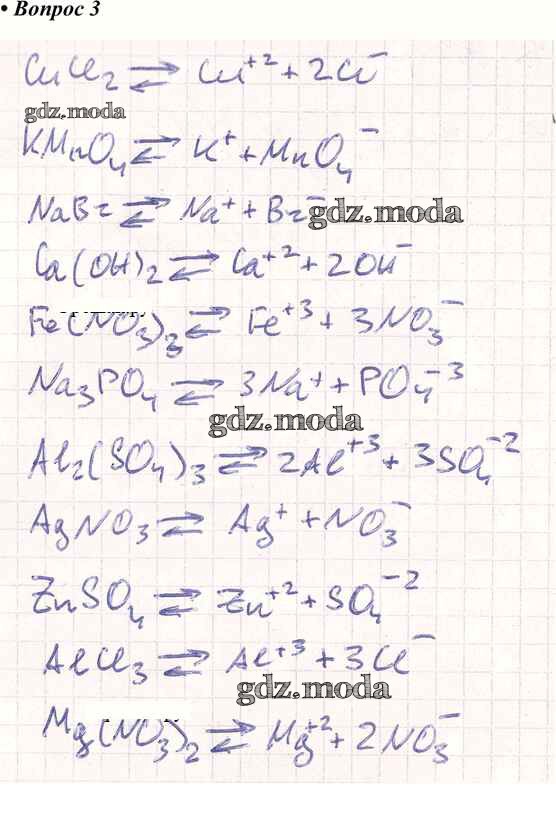 • Вопрос 3
CuCl₂ ⇄ Cu⁺² + 2Cl⁻
gdz.moda
KMnO₄ ⇄ K⁺ + MnO₄⁻
NaBr ⇄ Na⁺ + Br⁻ gdz.moda
Ca(OH)₂ ⇄ Ca⁺² + 2OH⁻
Fe(NO₃)₃ ⇄ Fe⁺³ + 3NO₃⁻
Na₃PO₄ ⇄ 3Na⁺ + PO₄⁻³
gdz.moda
Al₂(SO₄)₃ ⇄ 2Al⁺³ + 3SO₄⁻²
AgNO₃ ⇄ Ag⁺ + NO₃⁻
ZnSO₄ ⇄ Zn⁺² + SO₄⁻²
AlCl₃ ⇄ Al⁺³ + 3Cl⁻
gdz.moda
Mg(NO₃)₂ ⇄ Mg⁺² + 2NO₃⁻